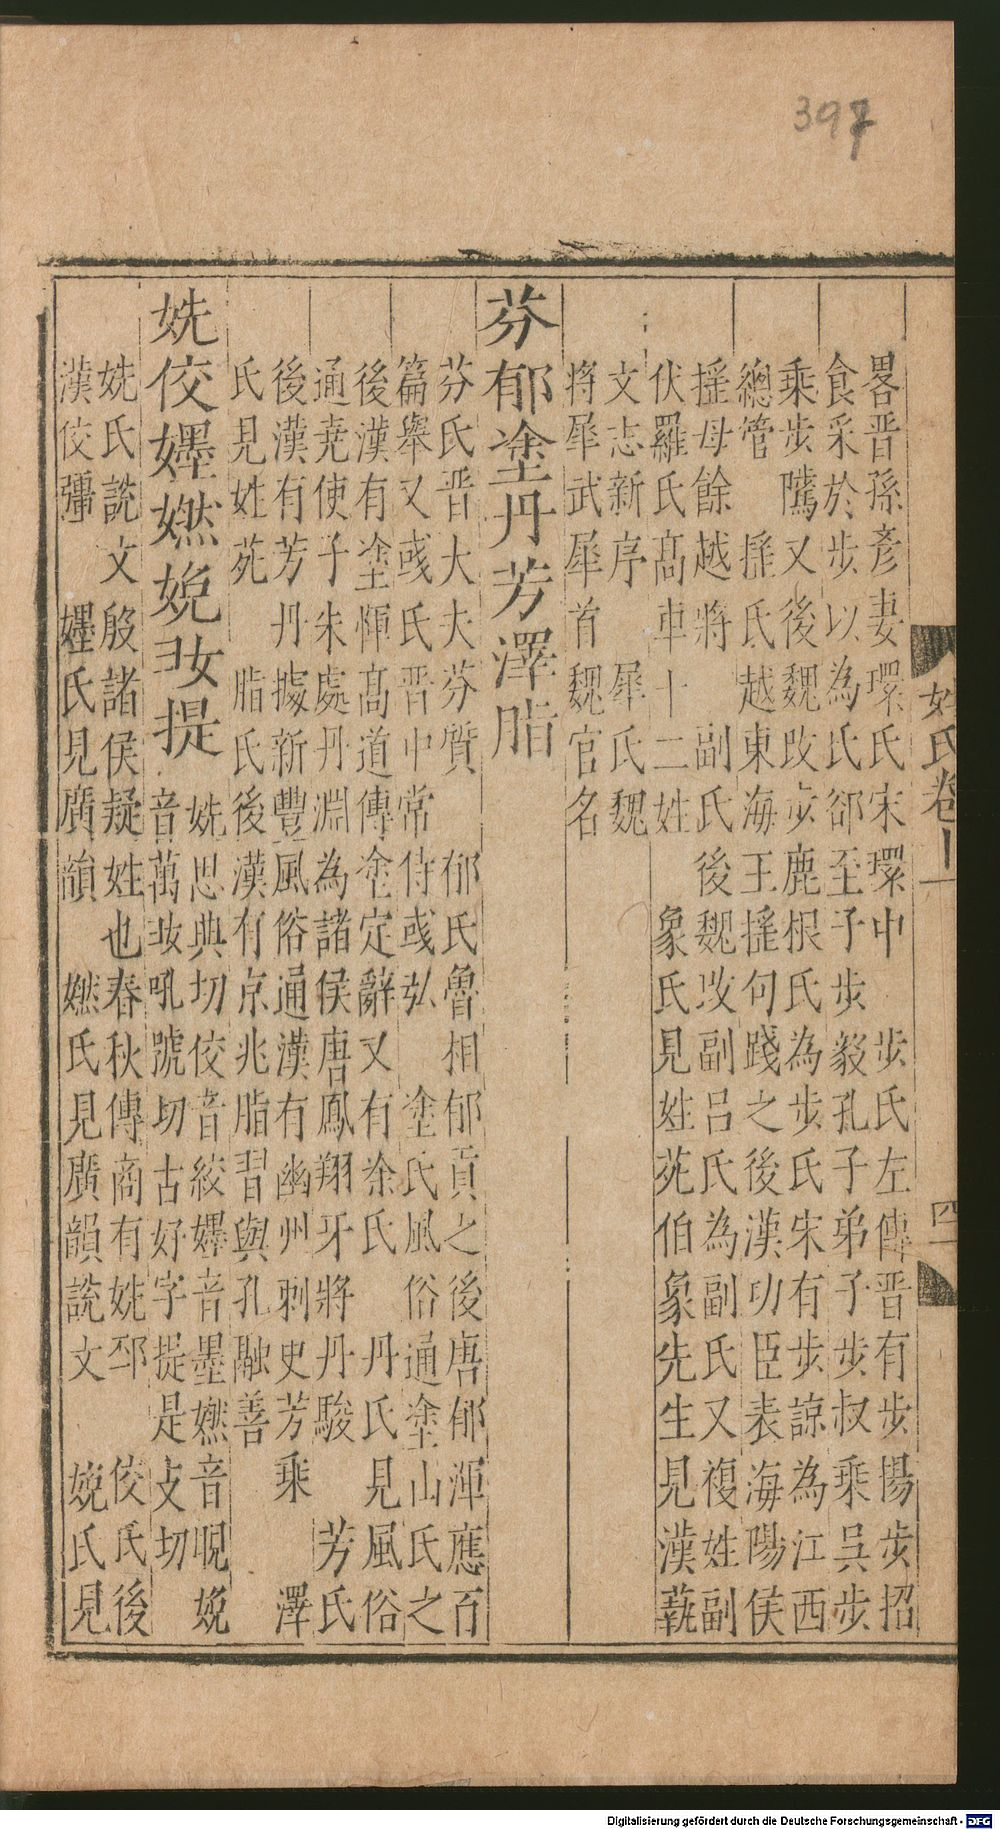 397
畧晋孫彥妻環氏宋環中　步氏左傳晋有步揚步招
食采於步以為氏郤至子步毅孔子弟子步叔乘吳步
乘步隲又後魏改步鹿根氏為步氏宋有步諒為江西
總管　搖氏越東海王搖句踐之後漢功臣表海陽侯
搖母餘越將　副氏後魏改副呂氏為副氏又複姓副
伏羅氏髙車十二姓　象氏見姓苑伯象先生見漢蓺
文志新序　犀氏魏
將犀武犀首魏官名
芬郁塗丹芳澤脂
芬氏晋大夫芬質　郁氏魯相郁貢之後唐郁渾應百
篇舉又彧氏晋中常侍彧弘　塗氏風俗通塗山氏之
後漢有塗惲髙道傳塗定辭又有涂氏　丹氏見風俗
通堯使子朱處丹淵為諸侯唐鳳翔牙將丹駿　芳氏
後漢有芳丹據新豐風俗通漢有幽州刺史芳乘　澤
氏見姓苑　脂氏後漢有京兆脂習與孔融善
姺佼嫼嬮娩㚢提
姺思典切佼音絞嫼音墨嬮音𪾢娩
音萬㚢吼號切古好字提是支切
姺氏說文殷諸侯疑姓也春秋傳商有姺邳　佼氏後
漢佼彊　嫼氏見廣韻　嬮氏見廣韻說文　娩氏見
姓氏卷上
四
Digitalisierung gefördert durch die Deutsche Forschungsgemeinschaft - DFG